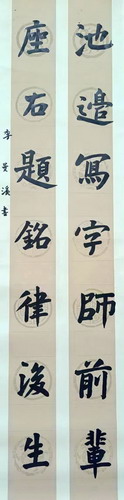 池邉寫字師前輩
座右題銘律後生
李曼溪書